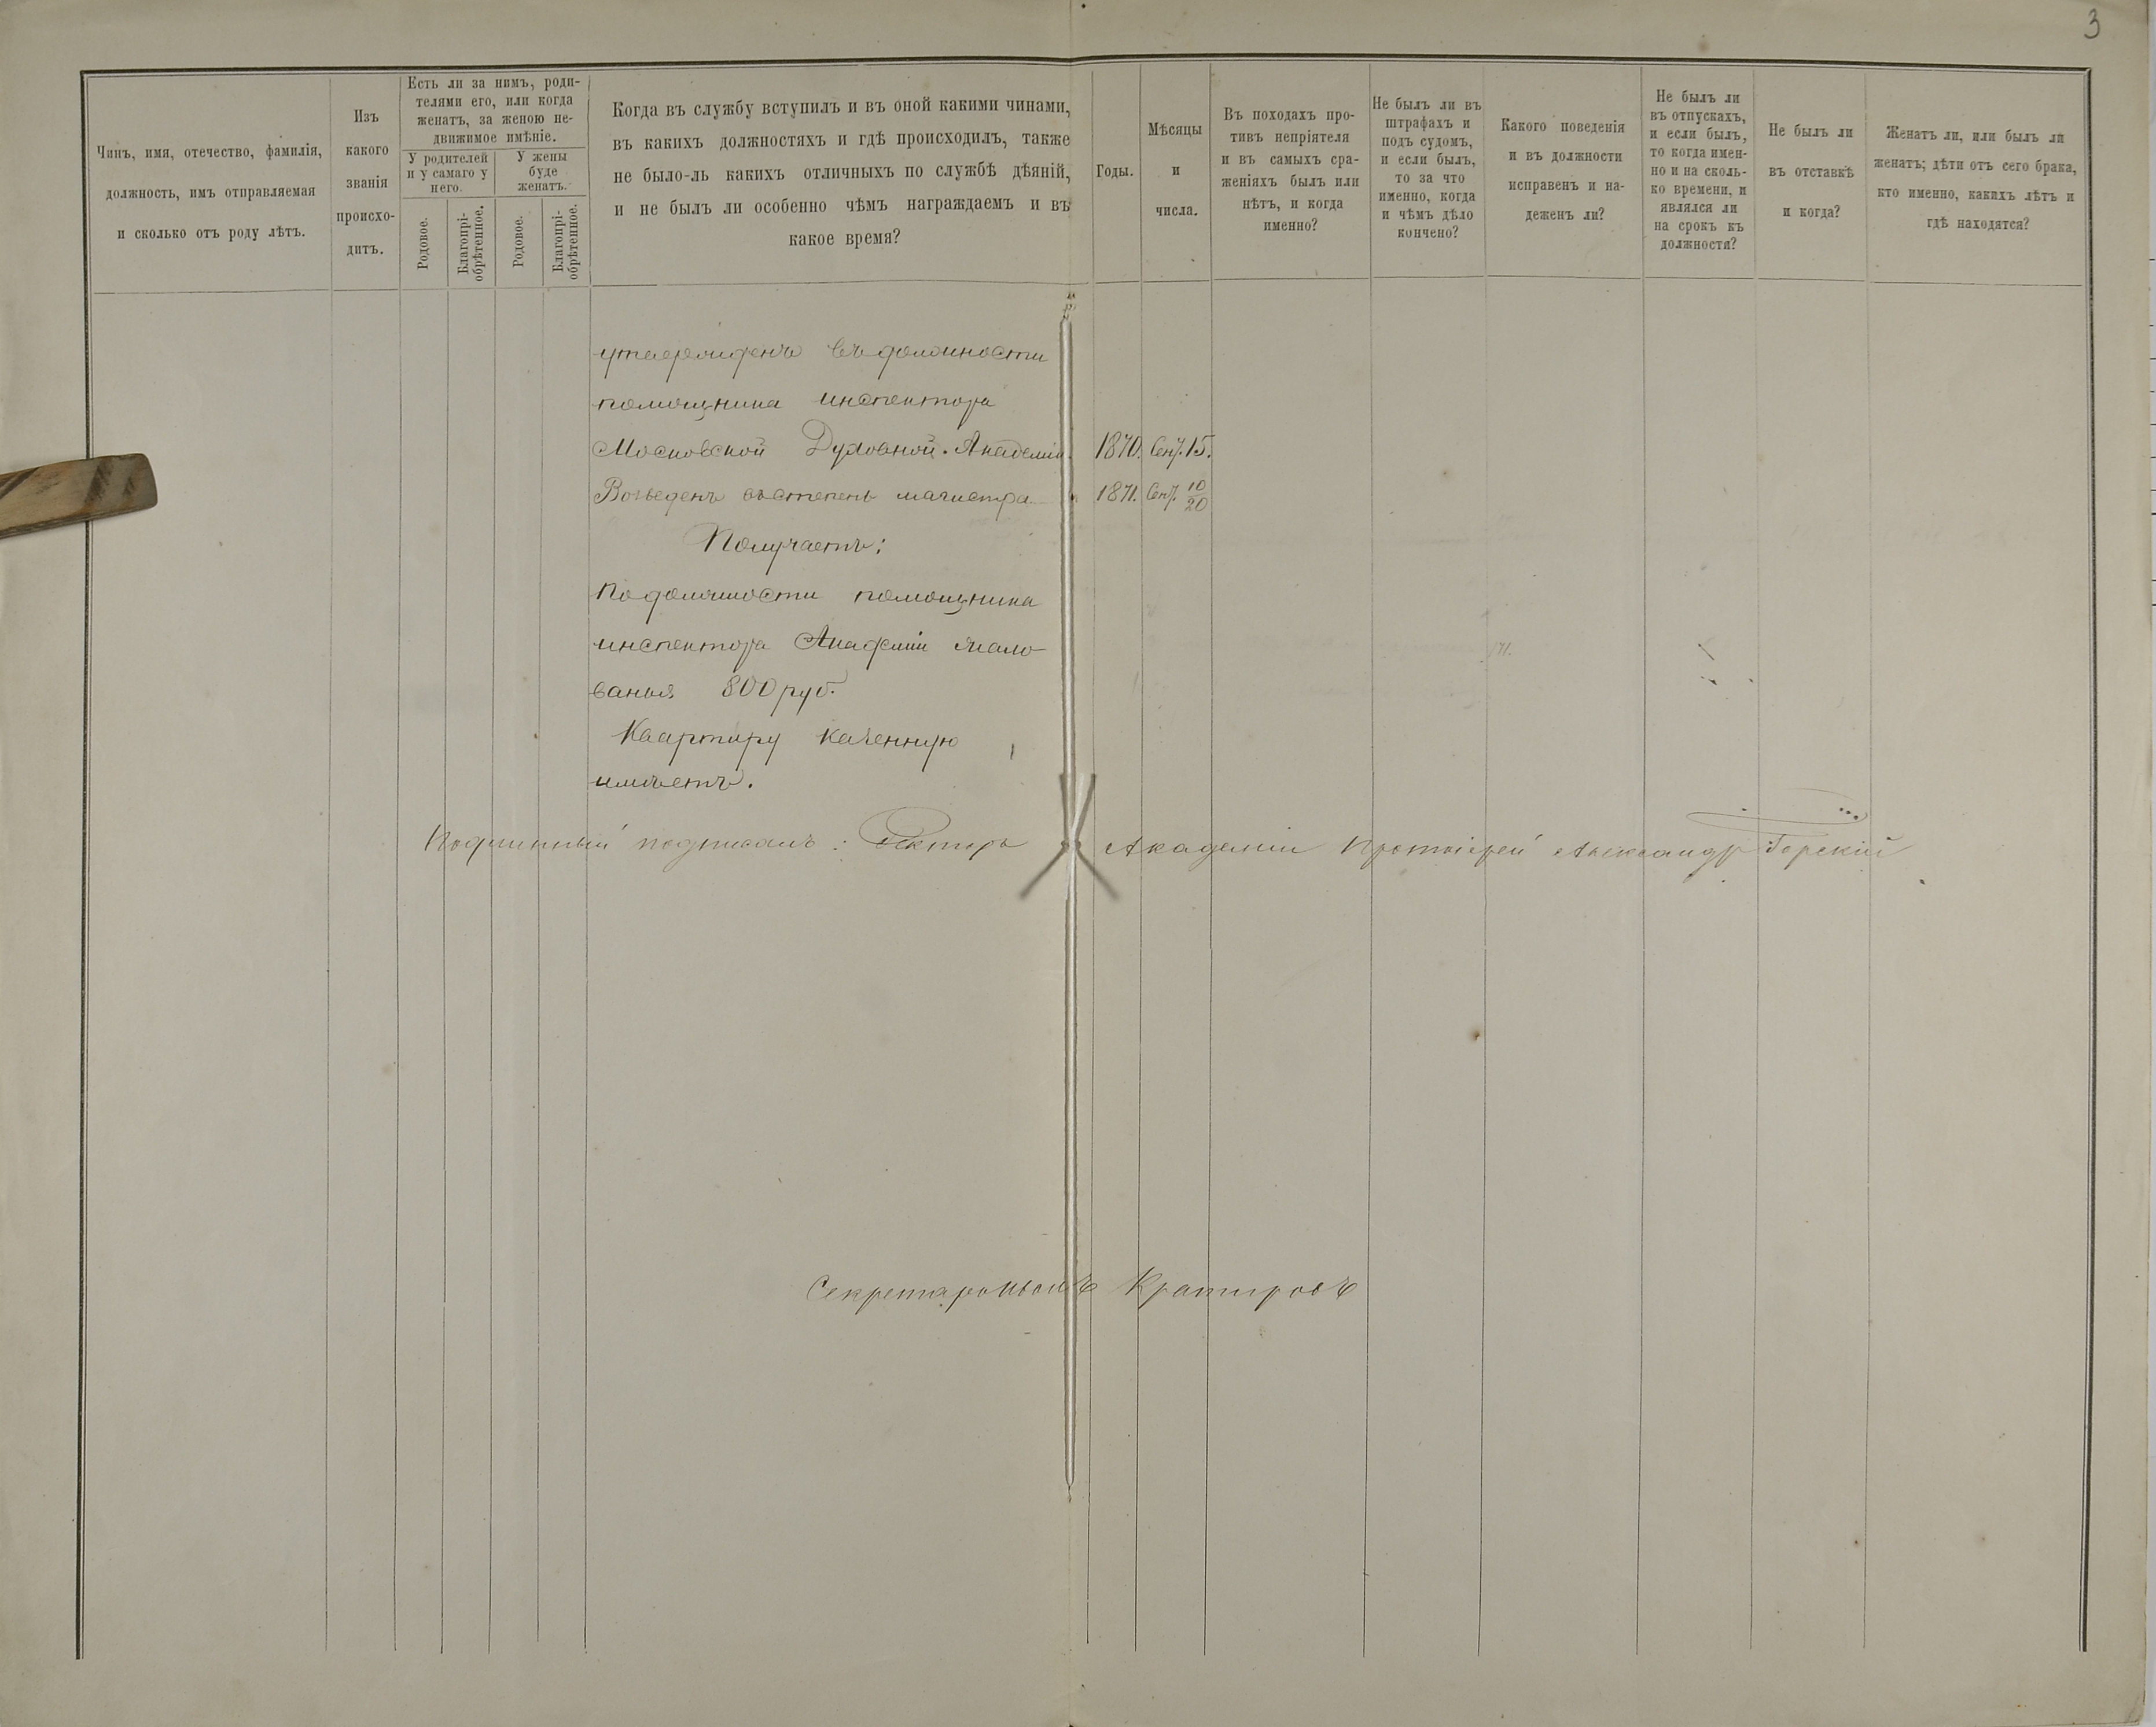 3
Чинъ, имя, отечество, фамилія,
должность, имъ отправляемая
и сколько отъ роду лѣтъ.
Изъ
какого
званія
происхо-
дитъ.
Есть ли за нимъ, роди-
телями его, или когда
женатъ, за женою не-
движимое имѣніе.
У родителей
и у самаго у
него.
У жены
буде
женатъ.
Родовое.
Благопрі-
обрѣтенное.
Родовое.
Благопрі-
обрѣтенное.
Когда въ службу вступилъ и въ оной какими чинами,
въ какихъ должностяхъ и гдѣ происходилъ, также
не было-ль какихъ отличныхъ по службѣ дѣяній,
и не былъ ли особенно чѣмъ награждаемъ и въ
какое время?
Годы.
Мѣсяцы
и
числа.
Въ походахъ про-
тивъ непріятеля
и въ самыхъ сра-
женіяхъ былъ или
нѣтъ, и когда
именно?
Не былъ ли въ
штрафахъ и
подъ судомъ,
и если былъ,
то за что
именно, когда
и чѣмъ дѣло
кончено?
Какого поведенія
и въ должности
исправенъ и на-
деженъ ли?
Не былъ ли
въ отпускахъ,
и если былъ,
то когда имен-
но и на сколь-
ко времени, и
являлся ли
на срокъ къ
должности?
Не былъ ли
въ отставкѣ
и когда?
Женатъ ли, или былъ ли
женатъ; дѣти отъ сего брака,
кто именно, какихъ лѣтъ и
гдѣ находятся?
утвержденъ въ должности
помощника инспектора
Московской Духовной Академіи. 1870. Сент. 15.
Возведенъ въ степень магистра 1871. Сент. 10/20
Получаетъ:
По должности помощника
инспектора Академіи жало-
ванья 800 руб.
Квартиру казенную
имѣетъ.
Подлинный подписалъ: Ректоръ Академіи Протоіерей Александръ Горскій
Кратировъ